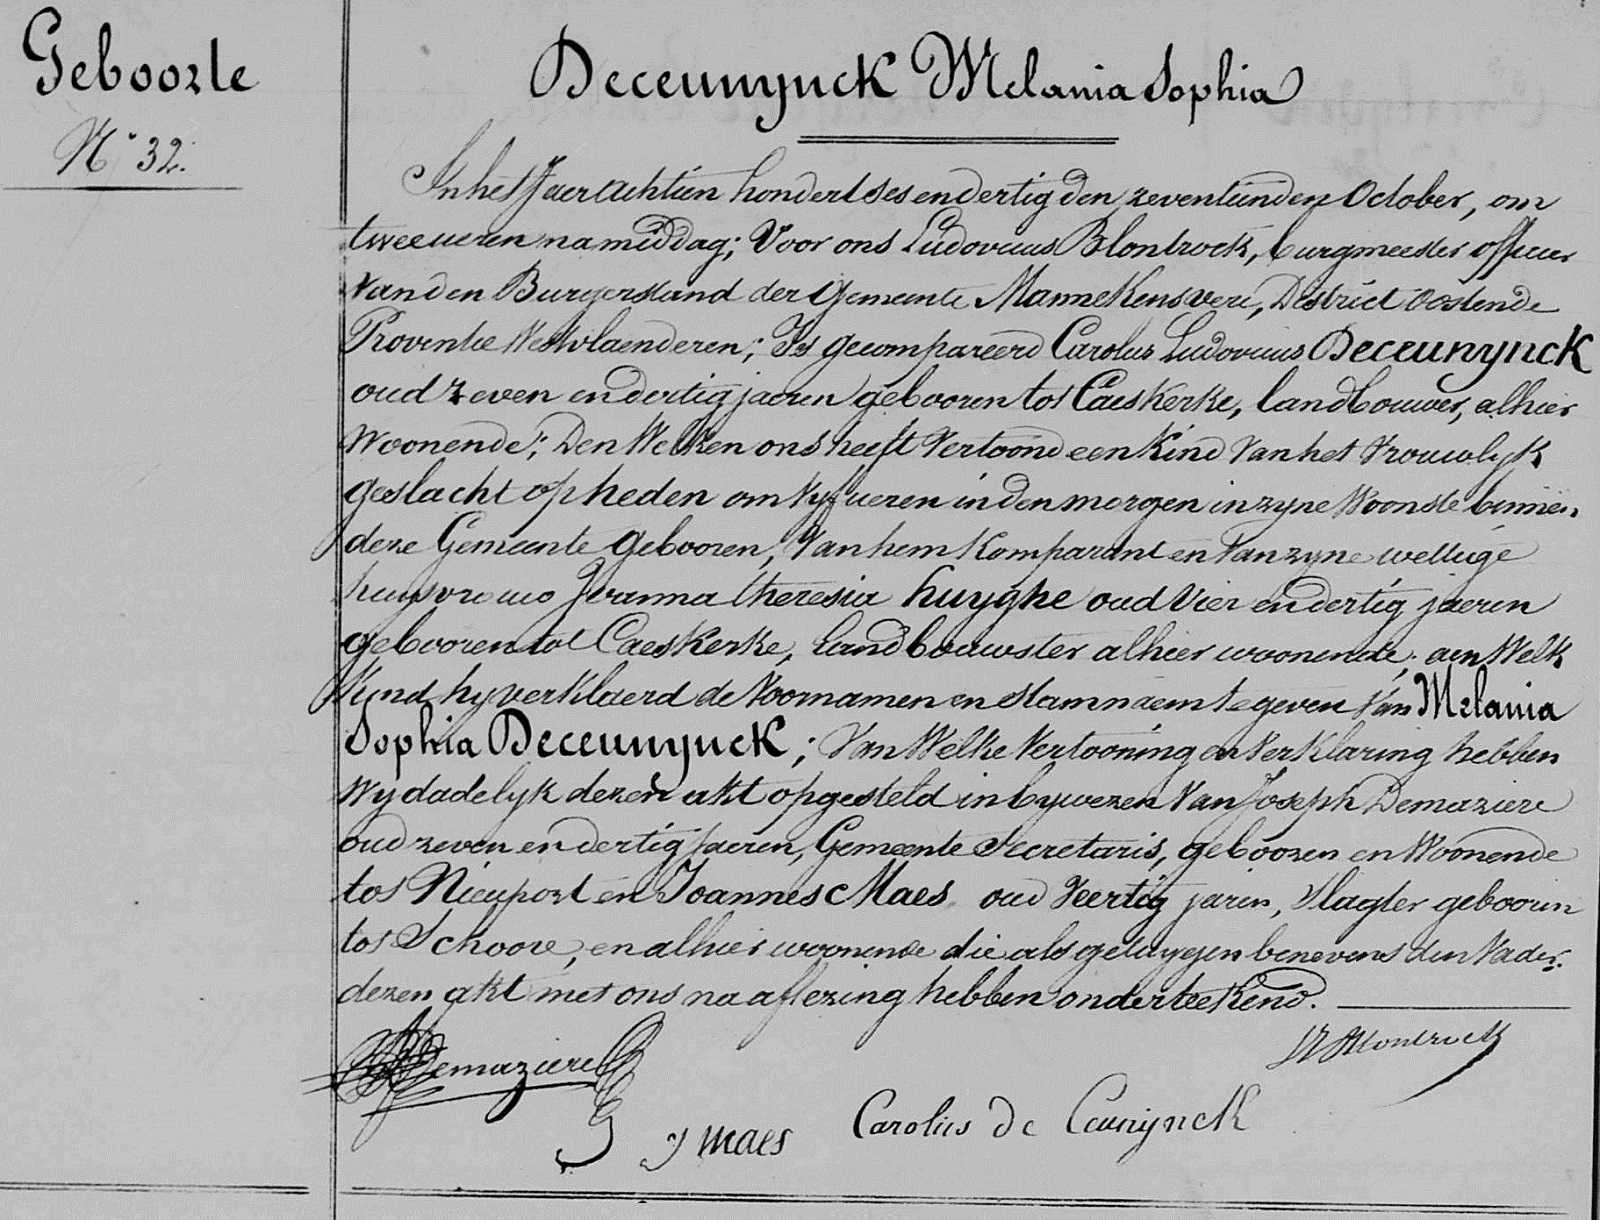 Geboorte
N° 32.
Deceunynck Melania Sophia
In het Jaer achtien hondert ses en dertig den zeventienden October, om
twee ueren namiddag; Voor ons Ludovicus Blontrock, burgmeester officier
Van den Burgerstand der Gemeente Mannekensvere, District Oostende
Provintie Westvlaenderen; Is gecompareerd Carolus Ludovicus Deceunynck
oud zeven en dertig jaeren gebooren tot Caeskerke, landbouwer, alhier
Woonende; Den Welken ons heeft Vertoond een Kind Van het Vrouwlyk
geslacht op heden om Vyf ueren in den morgen in zyne Woonste binnen
deze Gemeente Gebooren, Van hem Komparant en Van zyne wettige
huysvrouw Joanna theresia huyghe oud Vier en dertig jaeren
gebooren tot Caeskerke, Landbouwster alhier woonende; aen Welk
Kind hy verklaerd de Voornamen en Stamnaem te geven Van Melania
Sophia Deceunynck; Van Welke Vertooning en Verklaring hebben
Wy dadelyk dezen akt opgesteld in bywezen Van Joseph Demaziere
oud zeven en dertig Jaeren, Gemeente Secretaris, gebooren en Woonende
tot Nieuport en Joannes Maes oud Veertig jaren, Slagter gebooren
tot Schoore, en alhier woonende die als getuygen benevens den Vader
dezen akt met ons na aflezing hebben onderteekend.
Demaziere
Blontrock
J Maes
Carolus De Ceunynck